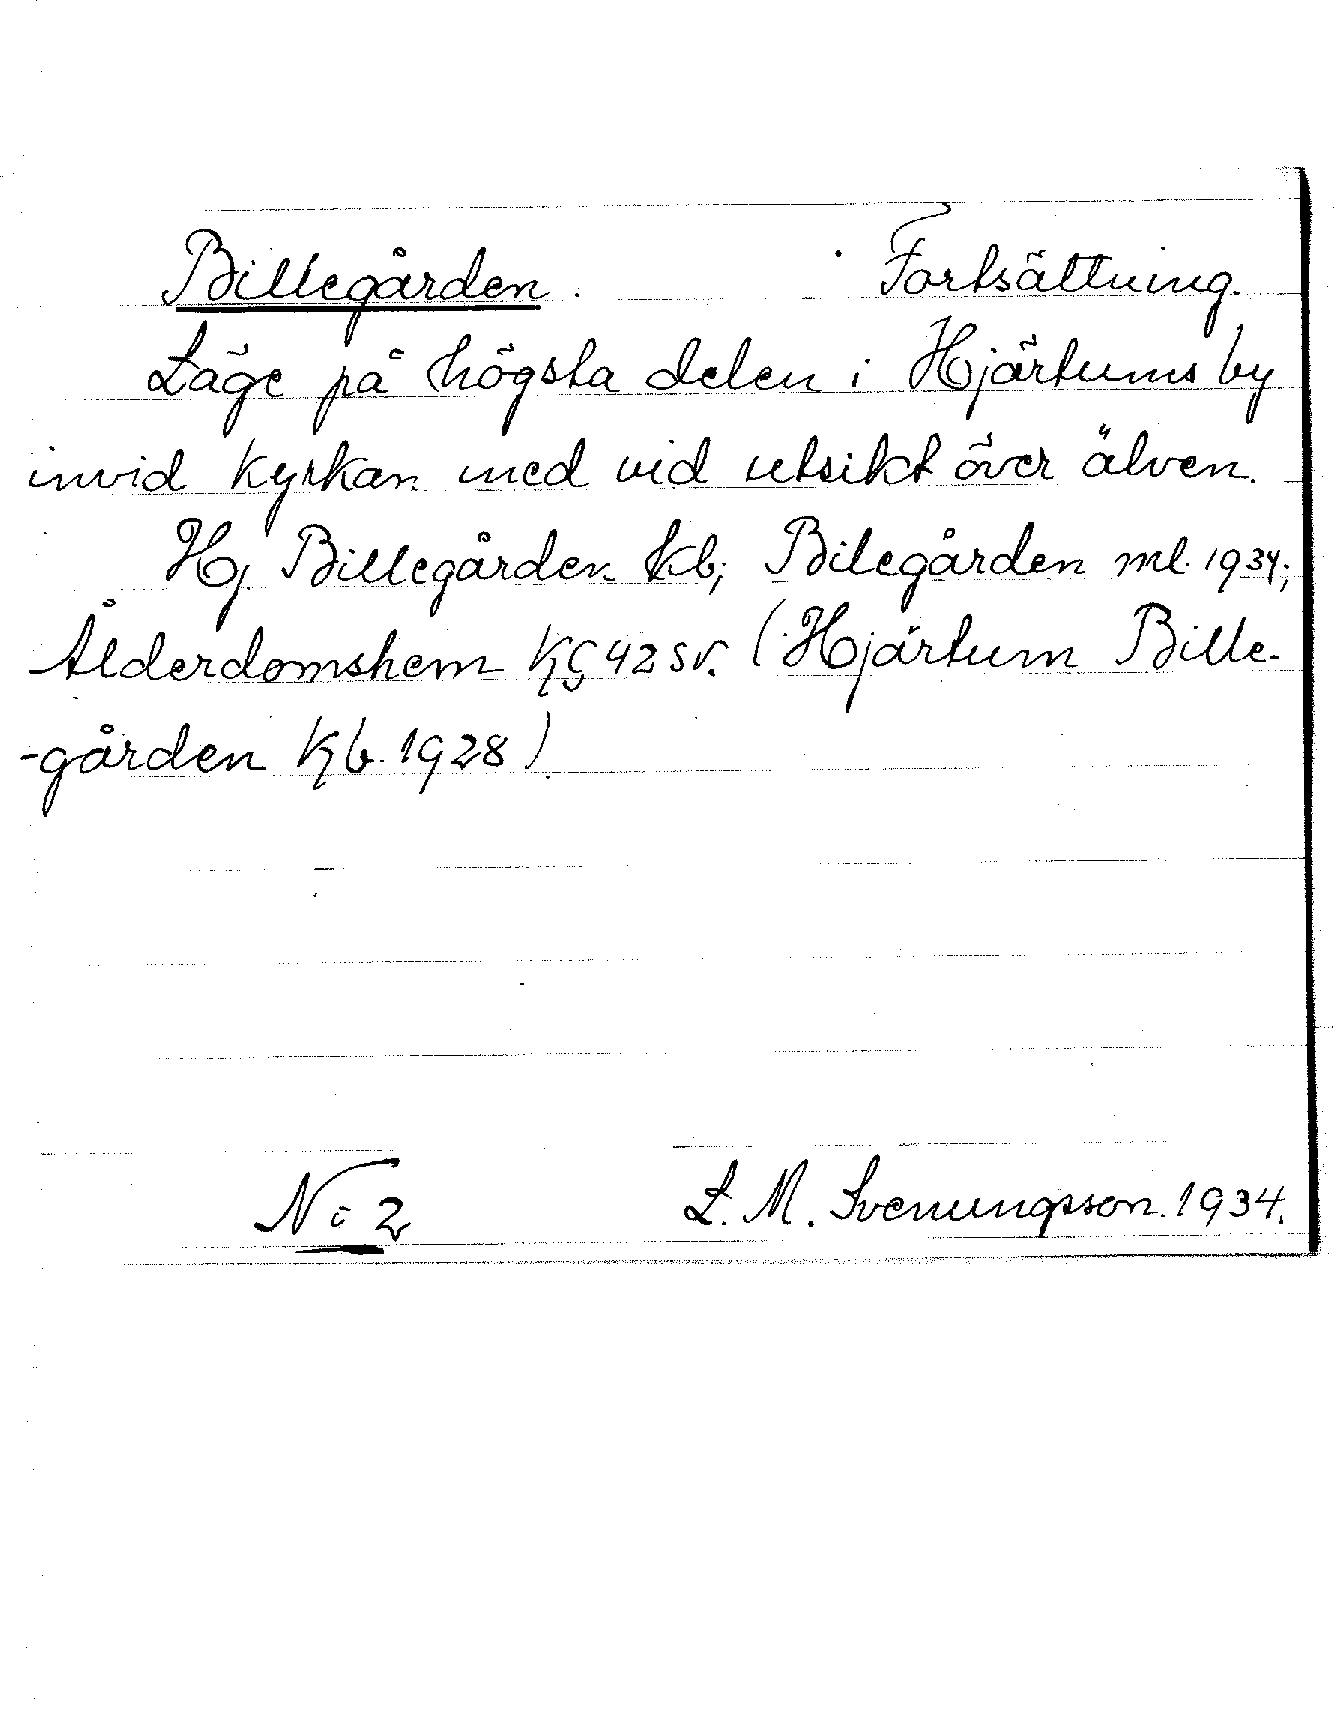 Billegården. Fortsättning.
Läge på högsta delen i Hjärtums by
invid kyrkan med vid utsikt över älven.
Hj. Billegården kb; Bilegården ml. 1934;
Ålderdomshem KG 42 sv. (Hjärtum Bille-
-gården Kb. 1928)
No 2 L. M. Svenungsson. 1934.